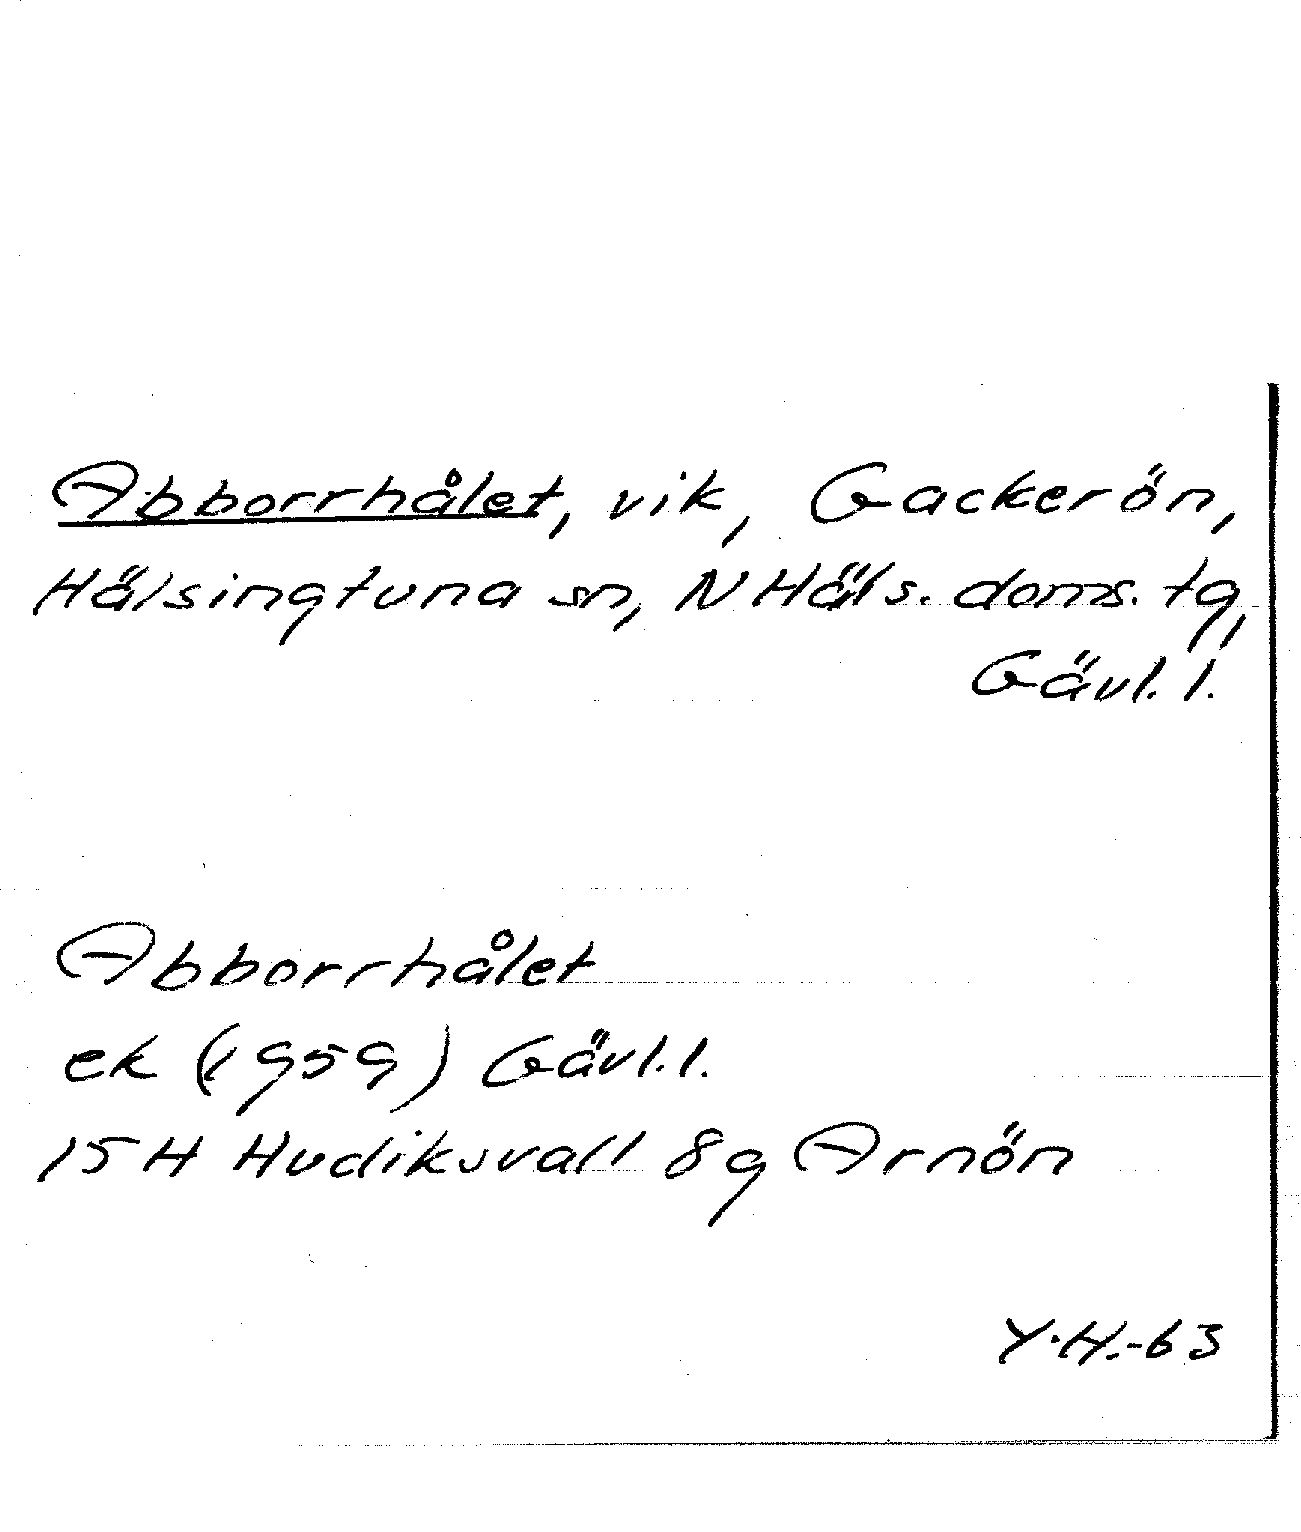 Abborrhålet, vik, Gackerön,
Hälsingtuna sn, N Häls. doms. tg,
Gävl. l.
Abborrhålet
ek (1959) Gävl. l.
15 H Hudiksvall 8g Arnön
Y.H.-63